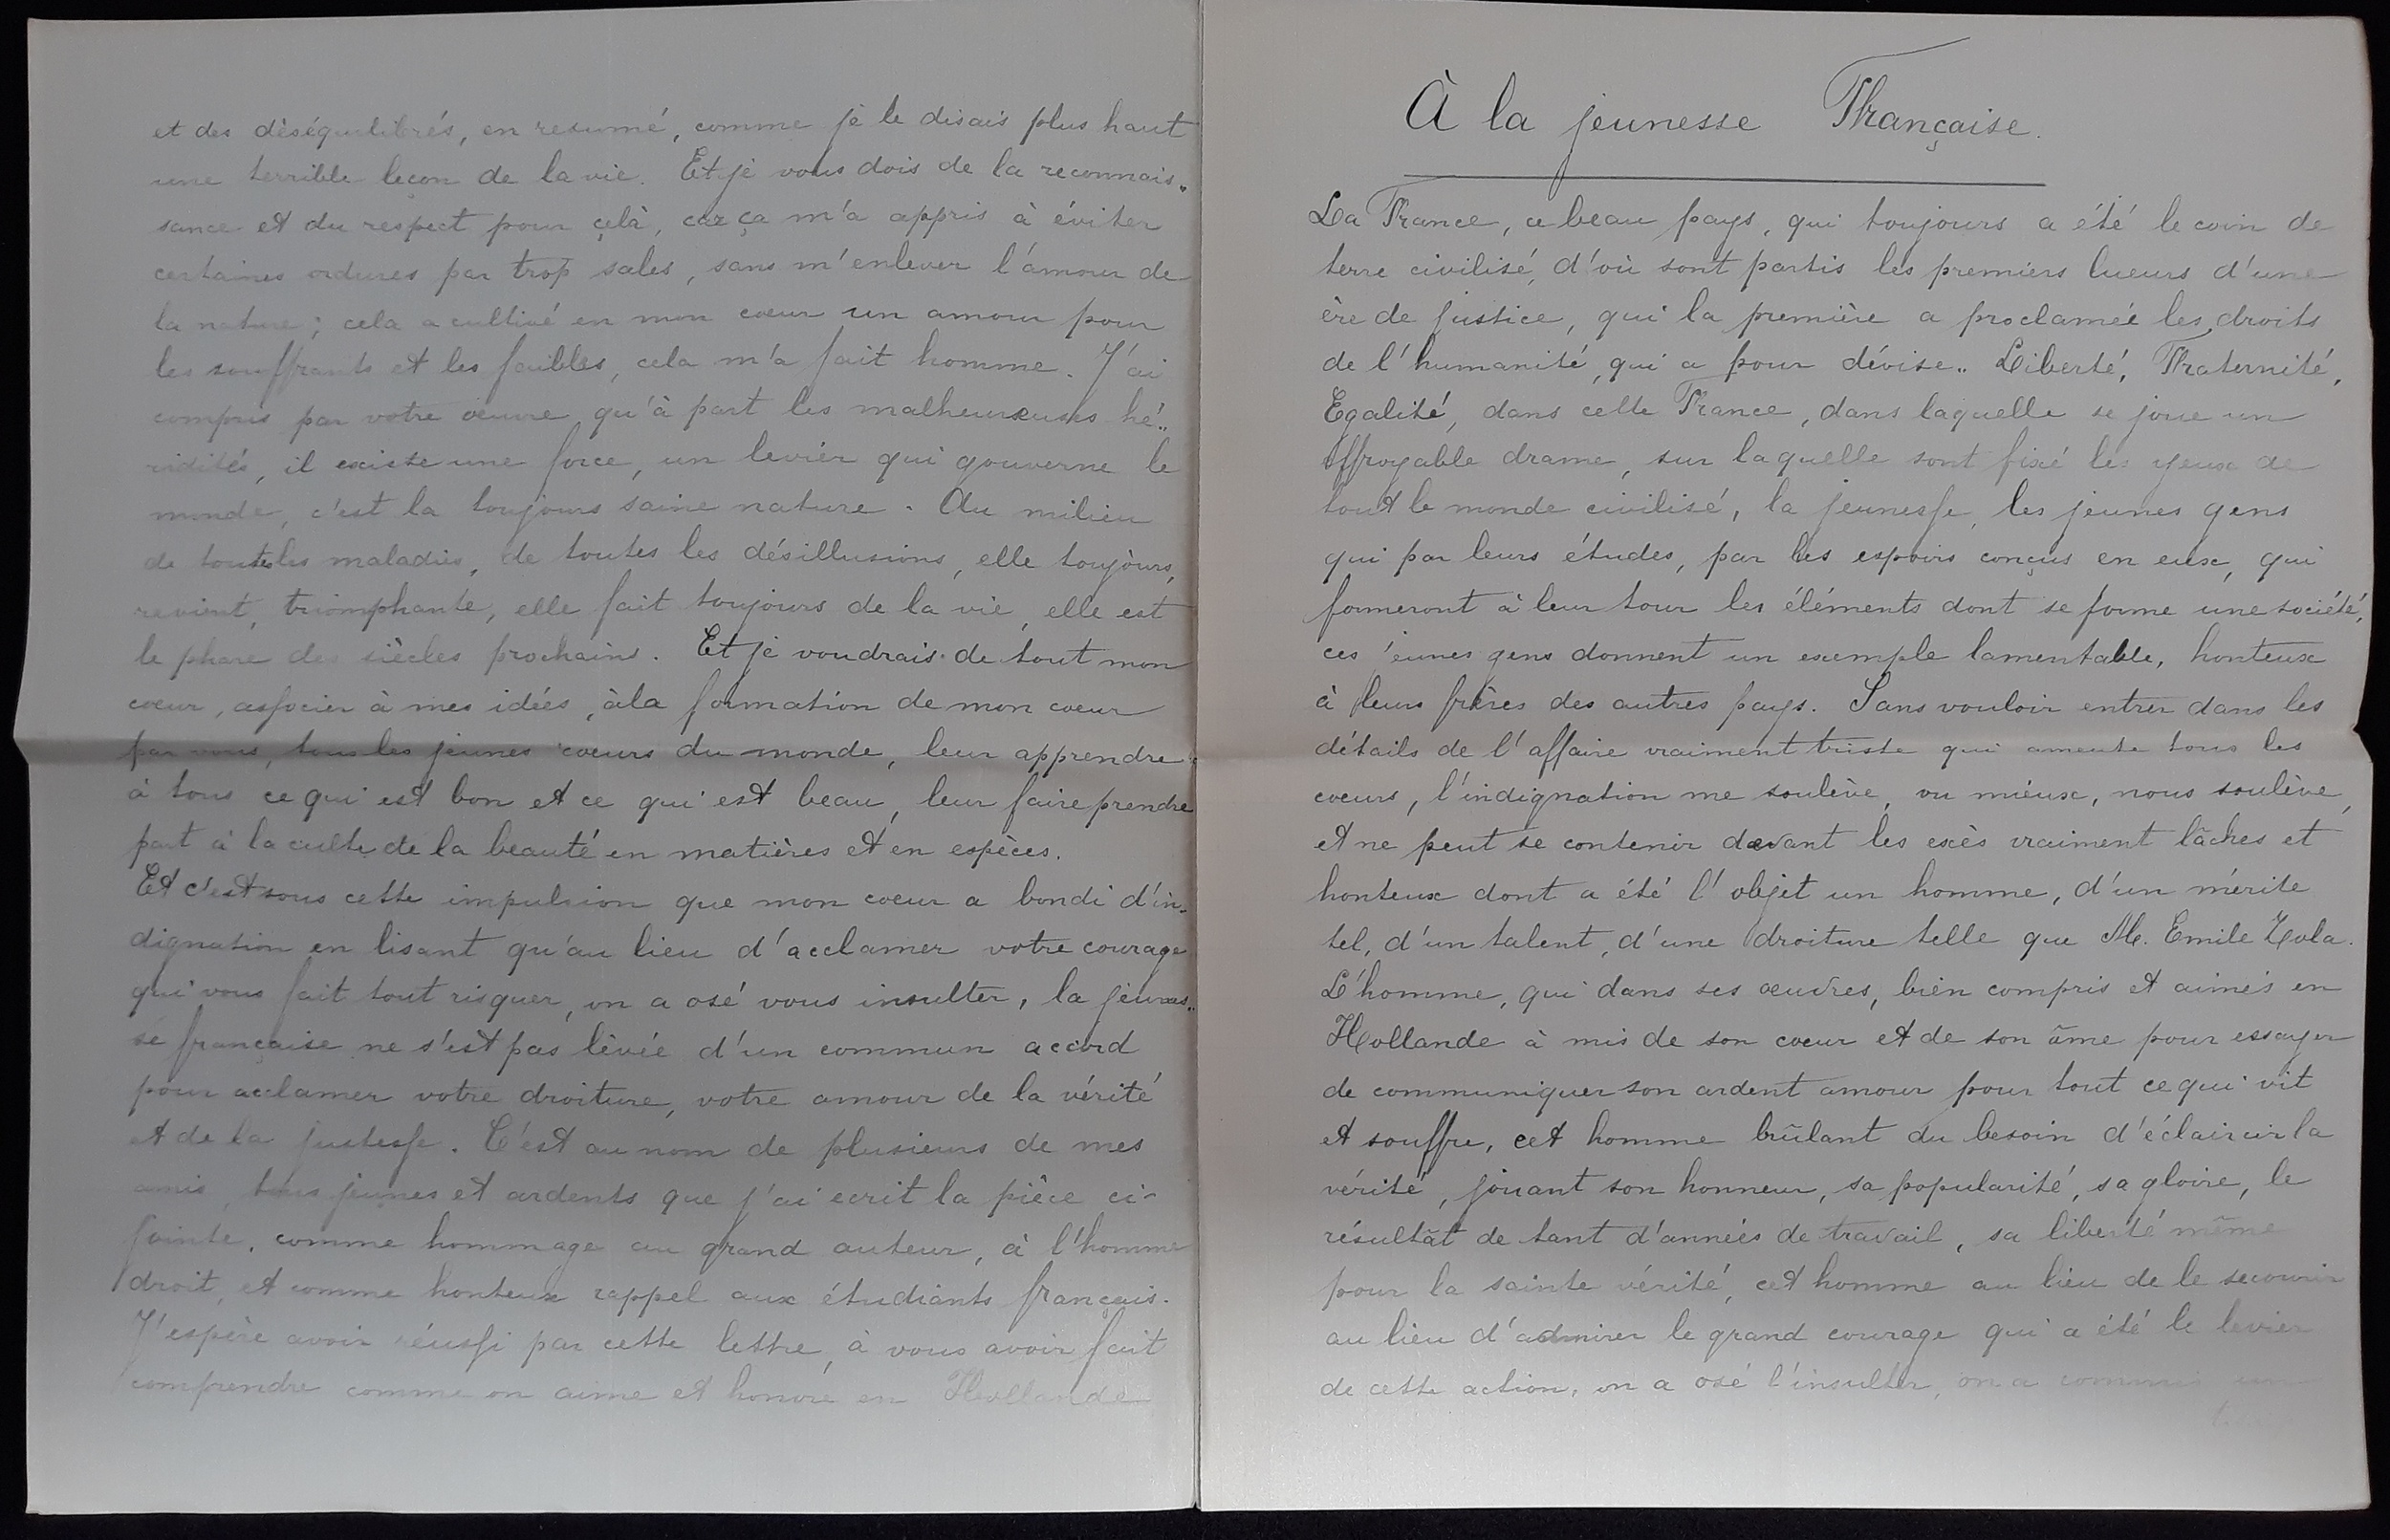 et des déséquilibrés, en resumé, comme je le disais plus haut
une terrible leçon de la vie. Et je vous dois de la reconnais„
sance et du respect pour çelà, car ça m'a appris à éviter
certaines ordures par trop sales, sans m'enlever l'amour de
la nature; cela a cultivé en mon coeur un amour pour
les souffrants et les faibles, cela m'a fait homme. J'ai
compris par votre oeuvre, qu'à part les malheureuses hé„
ridités, il existe une force, un levier qui gouverne le
monde, c'est la toujours saine nature. Au milieu
de toutes les maladies, de toutes les désillusions, elle toujours,
revient, triomphante, elle fait toujours de la vie, elle est
le phare des siècles prochains. Et je voudrais de tout mon
coeur, associer à mes idées, à la formation de mon coeur
par vous, tous les jeunes coeurs du monde, leur apprendre
à tous ce qui est bon et ce qui est beau, leur faire prendre
part à la culte de la beauté en matières et en espèces.
Et c'est sous cette impulsion que mon coeur a bondi d'in„
dignation en lisant qu'au lieu d'acclamer votre courage
qui vous fait tout risquer, on a osé vous insulter, la jeunes„
se française ne s'est pas lèvée d'un commun accord
pour acclamer votre droiture, votre amour de la vérité
et de la justesse. C'est au nom de plusieurs de mes
amis, tous jeunes et ardents que j'ai ecrit la pièce ci-
jointe, comme hommage au grand auteur, à l'homme
droit, et comme honteux rappel aux étudiants français.
J'espère avoir réussi par cette lettre, à vous avoir fait
comprendre comme on aime et honore en Hollande
À la jeunesse Française.
La France, ce beau pays, qui toujours a été le coin de
terre civilisé, d'où sont partis les premiers lueurs d'une
ère de justice, qui la première a proclamée les droits
de l'humanité, qui a pour dévise„ Liberté, Fraternité,
Egalité, dans cette France, dans laquelle se joue un
effroyable drame, sur laquelle sont fixé les yeux de
tout le monde civilisé, la jeunesse, les jeunes gens
qui par leurs études, par les espoirs conçus en eux, qui
formeront à leur tour les éléments dont se forme une société,
ces jeunes gens donnent un exemple lamentable, honteux
à leurs frères des autres pays. Sans vouloir entrer dans les
détails de l'affaire vraiment triste qui ameute tous les
coeurs, l'indignation me soulève, ou mieux, nous soulève,
et ne peut se contenir devant les exès vraiment lâches et
honteux dont a été l'objet un homme, d'un mérite
tel, d'un talent, d'une droiture telle que M. Emile Zola.
L'homme, qui dans ses oeuvres, bien compris et aimés en
Hollande à mis de son coeur et de son âme pour essayer
de communiquer son ardent amour pour tout ce qui vit
et souffre, cet homme brûlant du besoin d'éclaircir la
vérité, jouant son honneur, sa popularité, sa gloire, le
résultat de tant d'années de travail, sa liberté même
pour la sainte vérité, cet homme au lieu de le secourir
au lieu d'admirer le grand courage qui a été le levier
de cette action, on a osé l'insulter, on a commis un